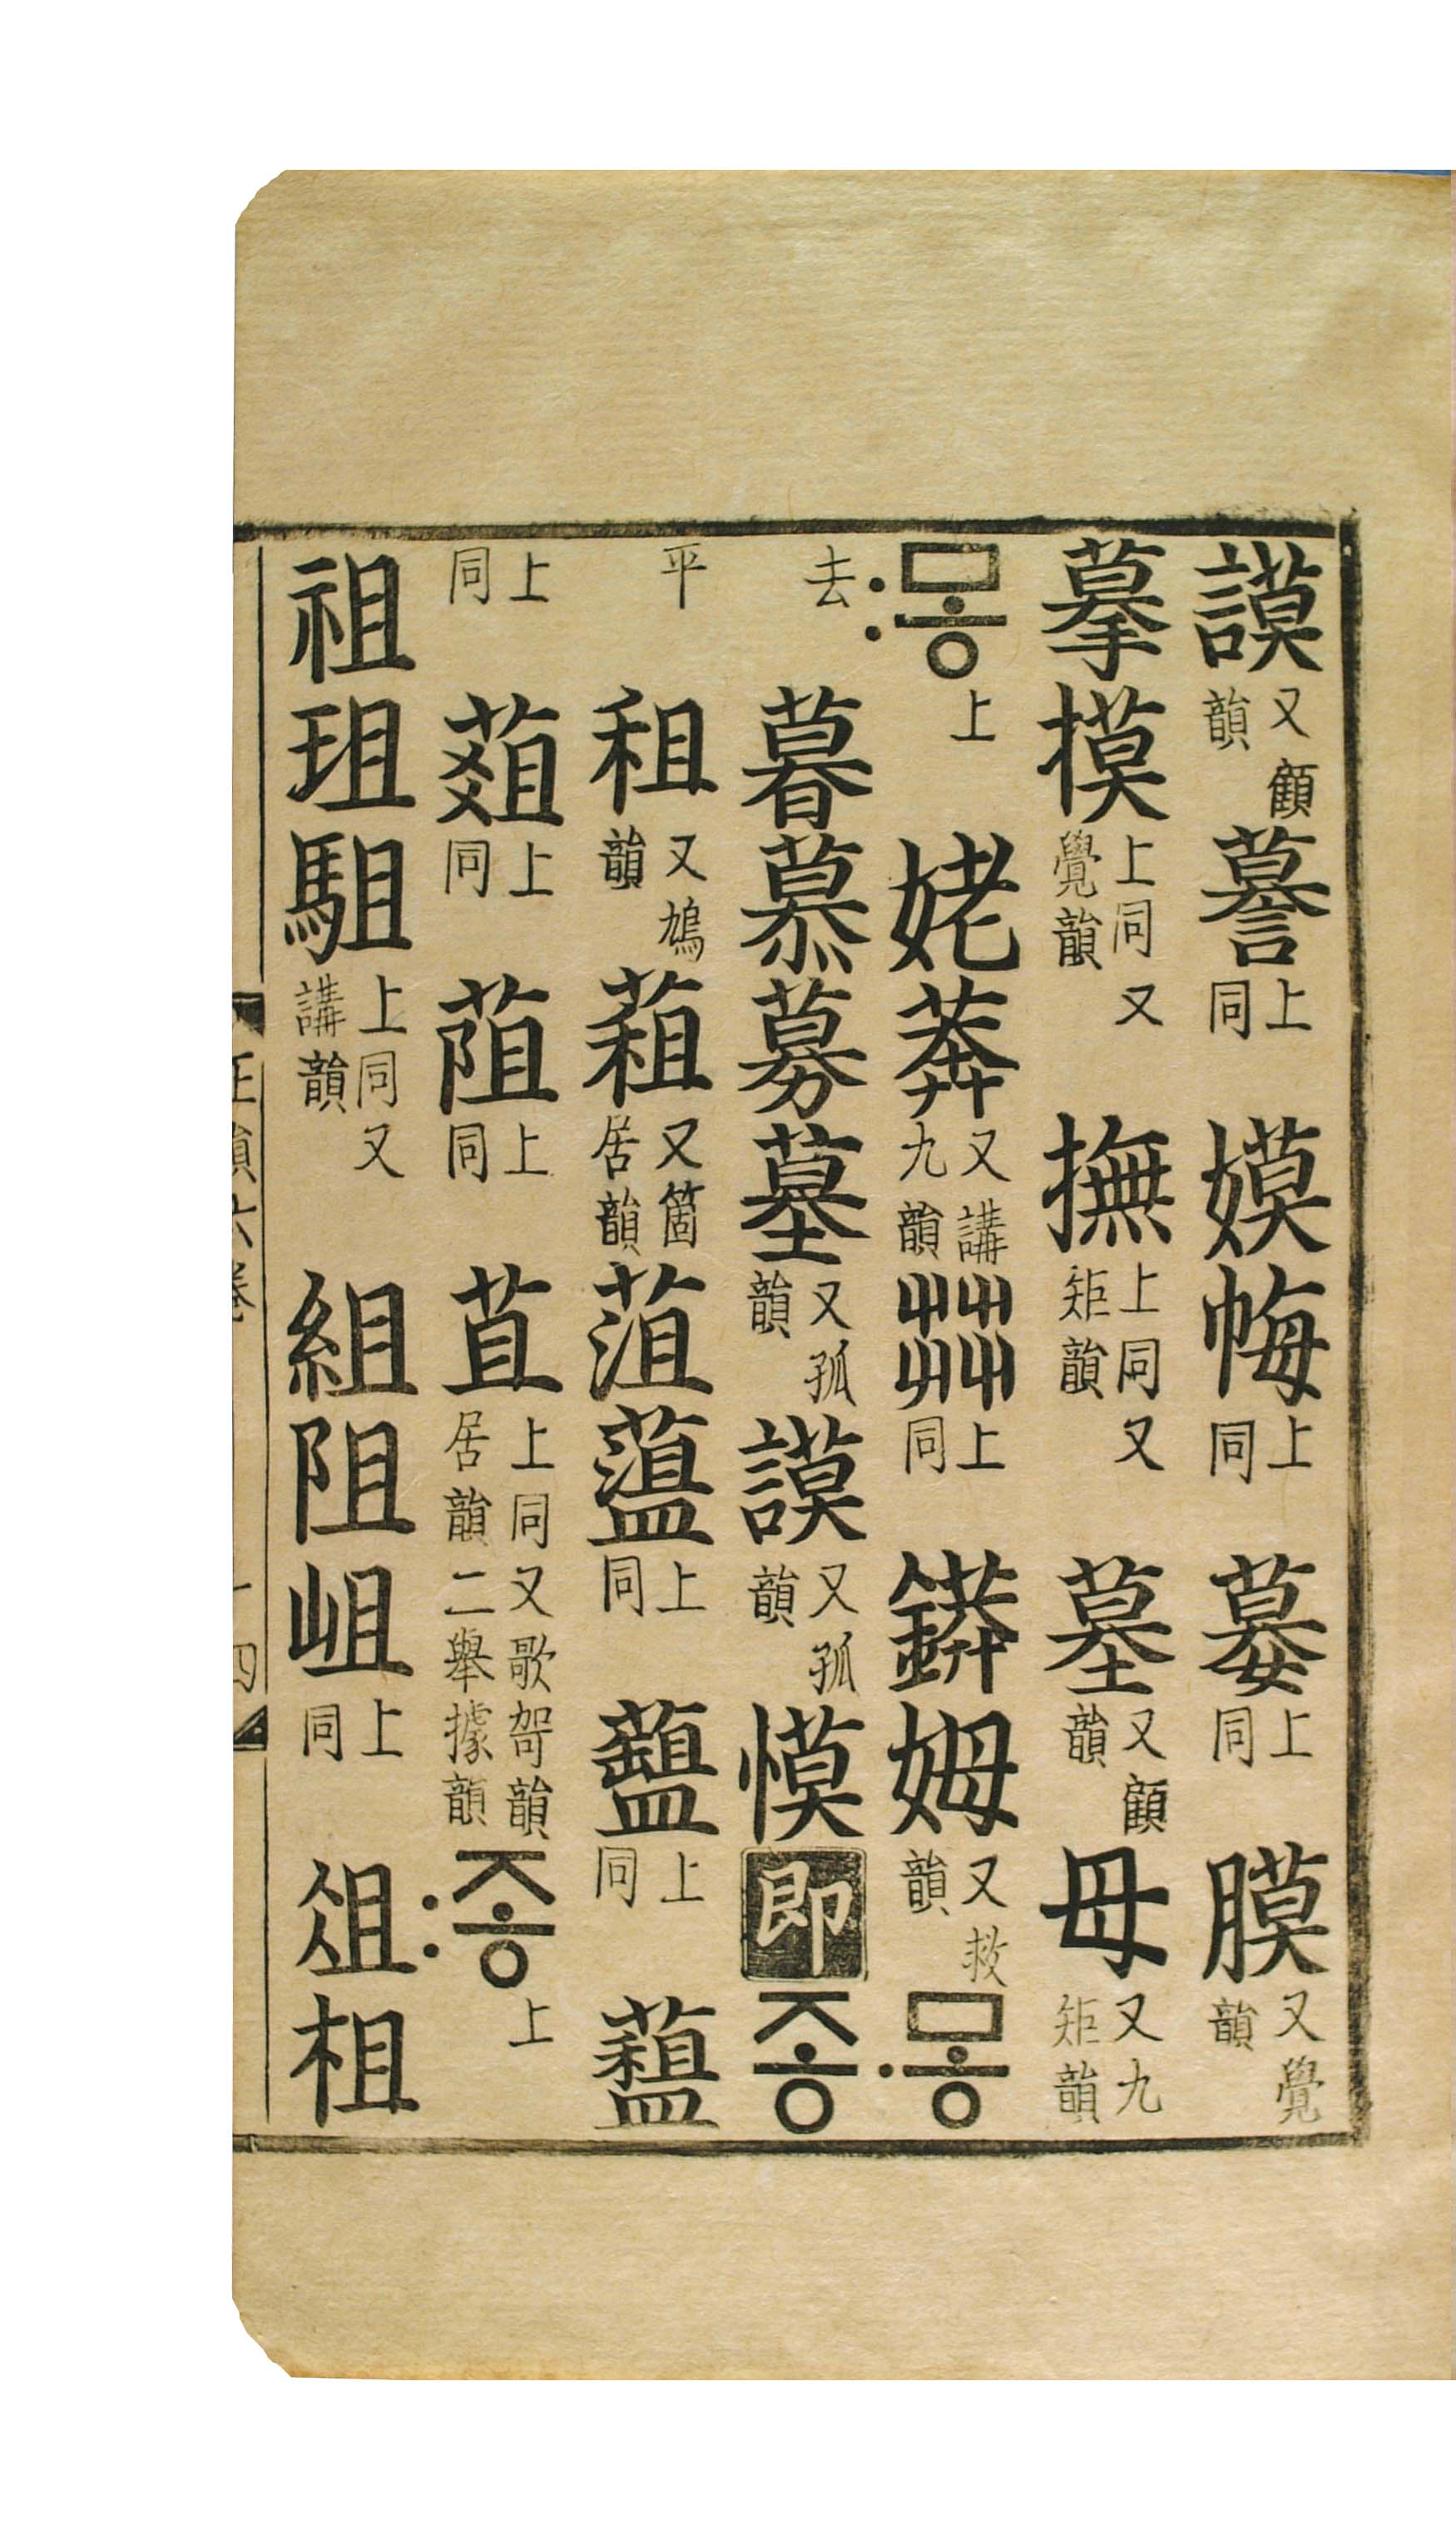 謨又顧韻謩上同嫫上同上同膜又覺韻
摹摸上同又覺韻撫上同又矩韻墓又顧韻母又九矩韻
〯몽上姥莽又講九韻茻上同姆又救韻〮몽
去暮慕募墓又孤韻謨又孤韻慔即종
平租又鳩韻蒩又箇居韻菹上同上同
上同上同上同苴上同又歌哿韻居韻二舉據韻〯종上
祖珇駔上同又講韻組阻岨上同俎柤